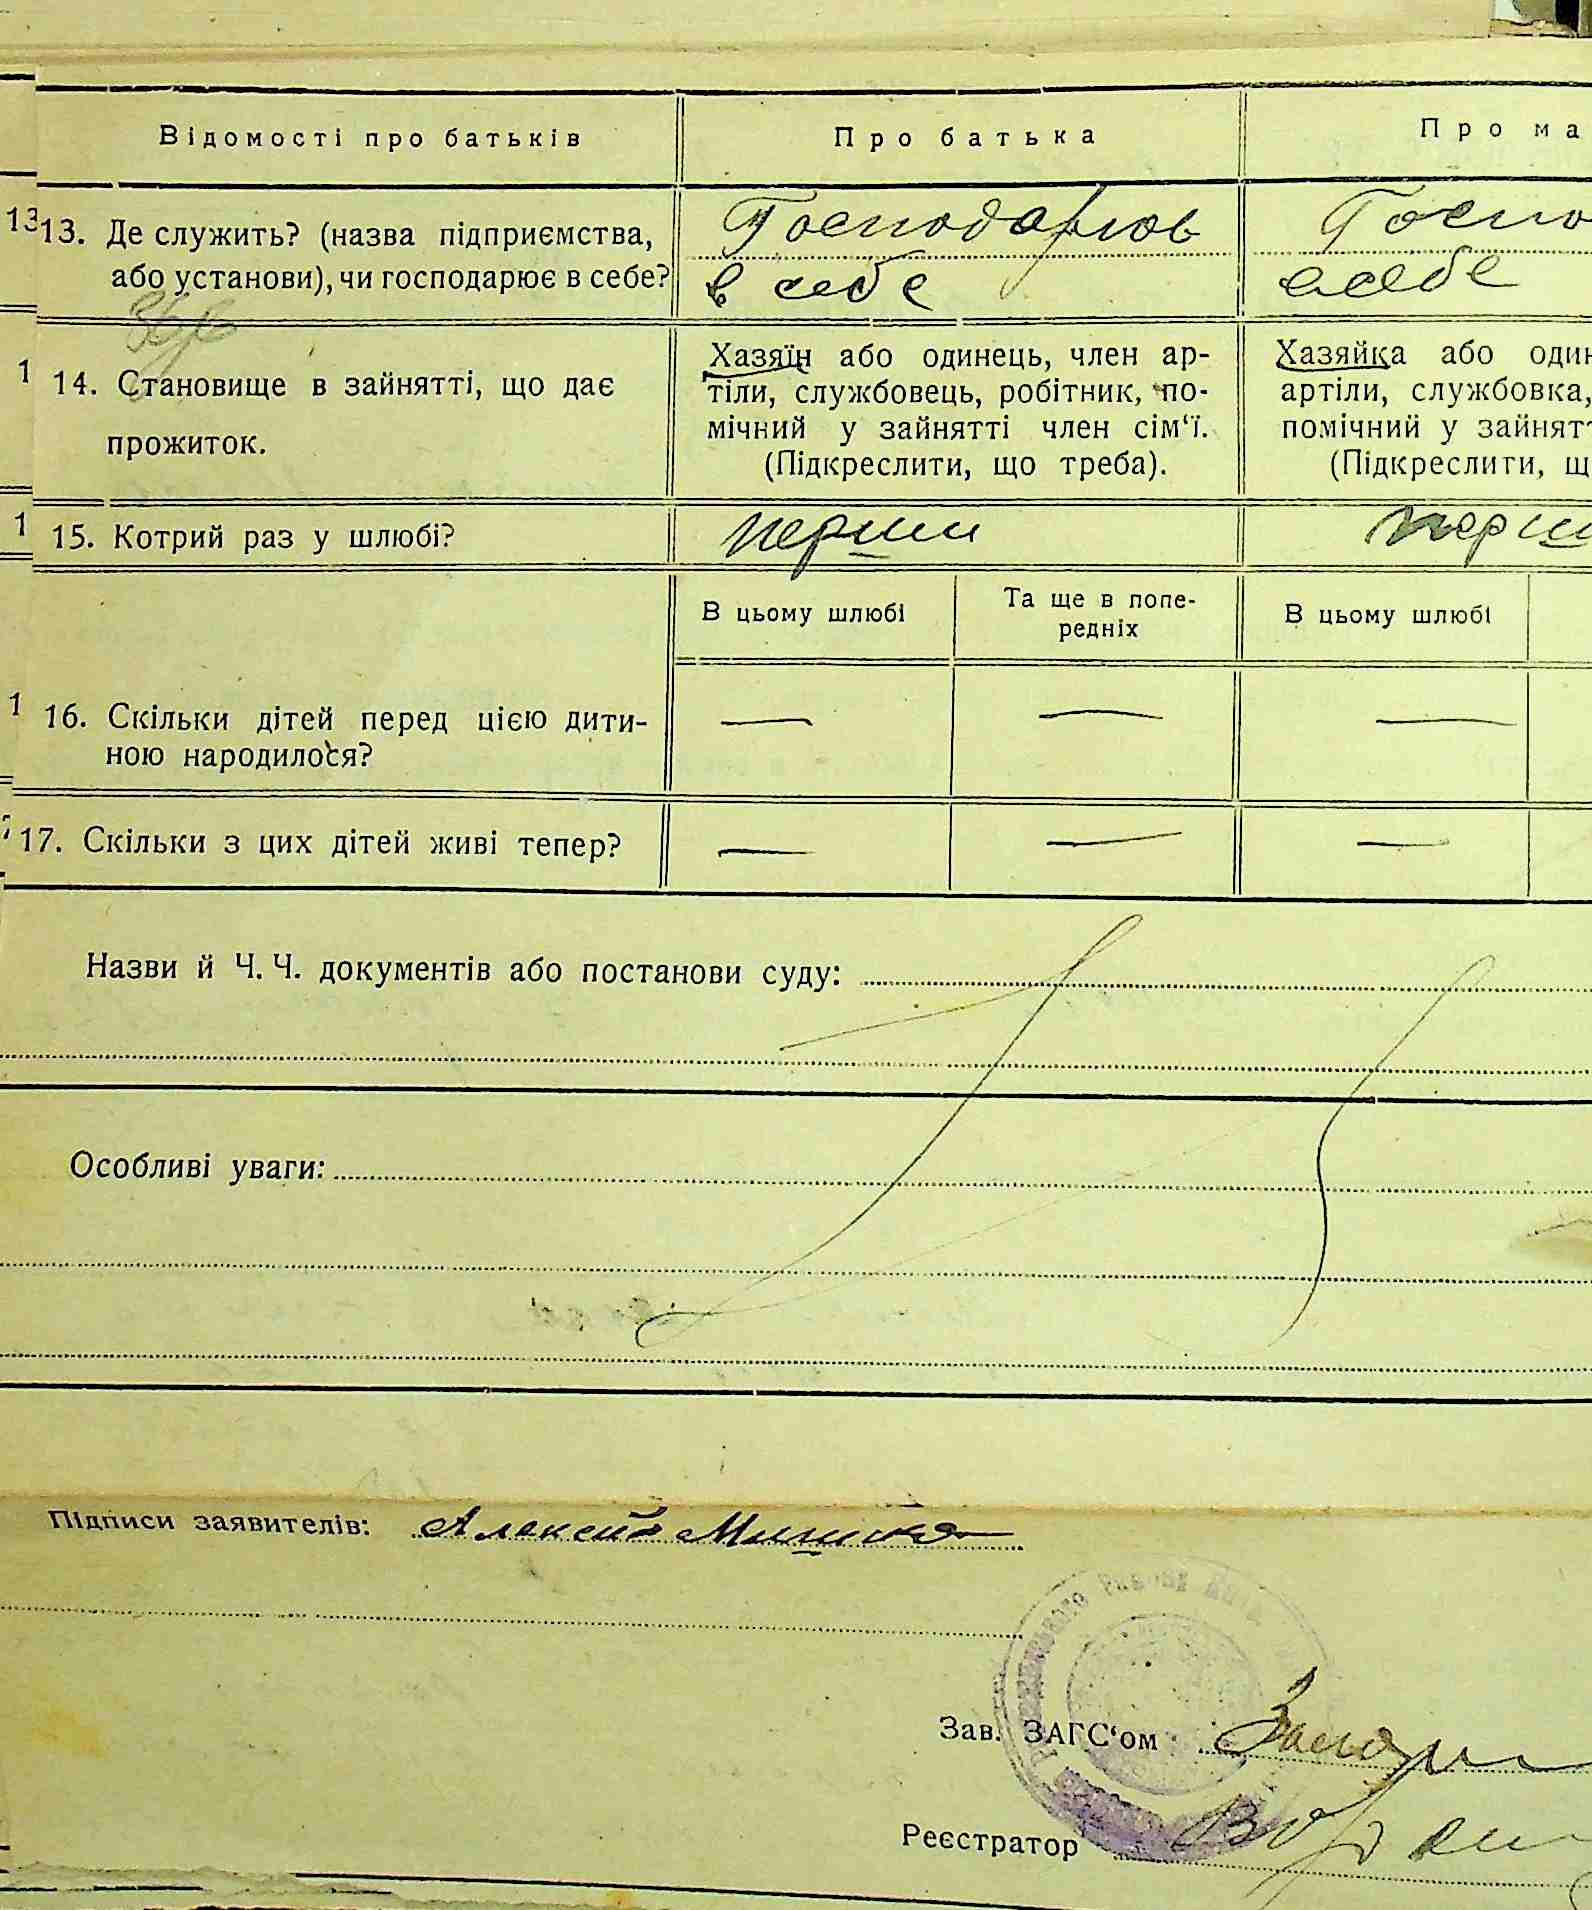 Відомості про батьків
Про батька
Про ма
13
13. Де служить? (назва підприємства,
або установи), чи господарює в себе?
Господарює
в себе
Госпо
в себе
1
14. Становище в зайнятті, що дає
прожиток.
Хазяїн або одинець, член ар-
тіли, службовець, робітник, по-
мічний у зайнятті член сім‘ї.
(Підкреслити, що треба).
Хазяйка або один
артіли, службовка,
помічний у зайнят
(Підкреслити, щ
1
15. Котрий раз у шлюбі?
перший
перш
В цьому шлюбі
Та ще в попе-
редніх
В цьому шлюбі
1
16. Скільки дітей перед цією дити-
ною народилося?
— — —
17. Скільки з цих дітей живі тепер?
— — —
Назви й Ч. Ч. документів або постанови суду:
Особливі уваги:
Підписи заявителів: Алексей
Зав. ЗАГС‘ом
Реєстратор